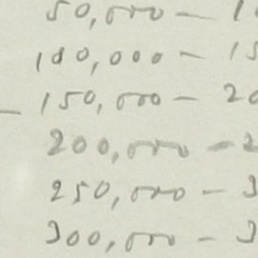 50,000 – 1
100,000 – 15
– 150,000 – 20
200,000 – 2
250,000 – 3
300,000 – 3